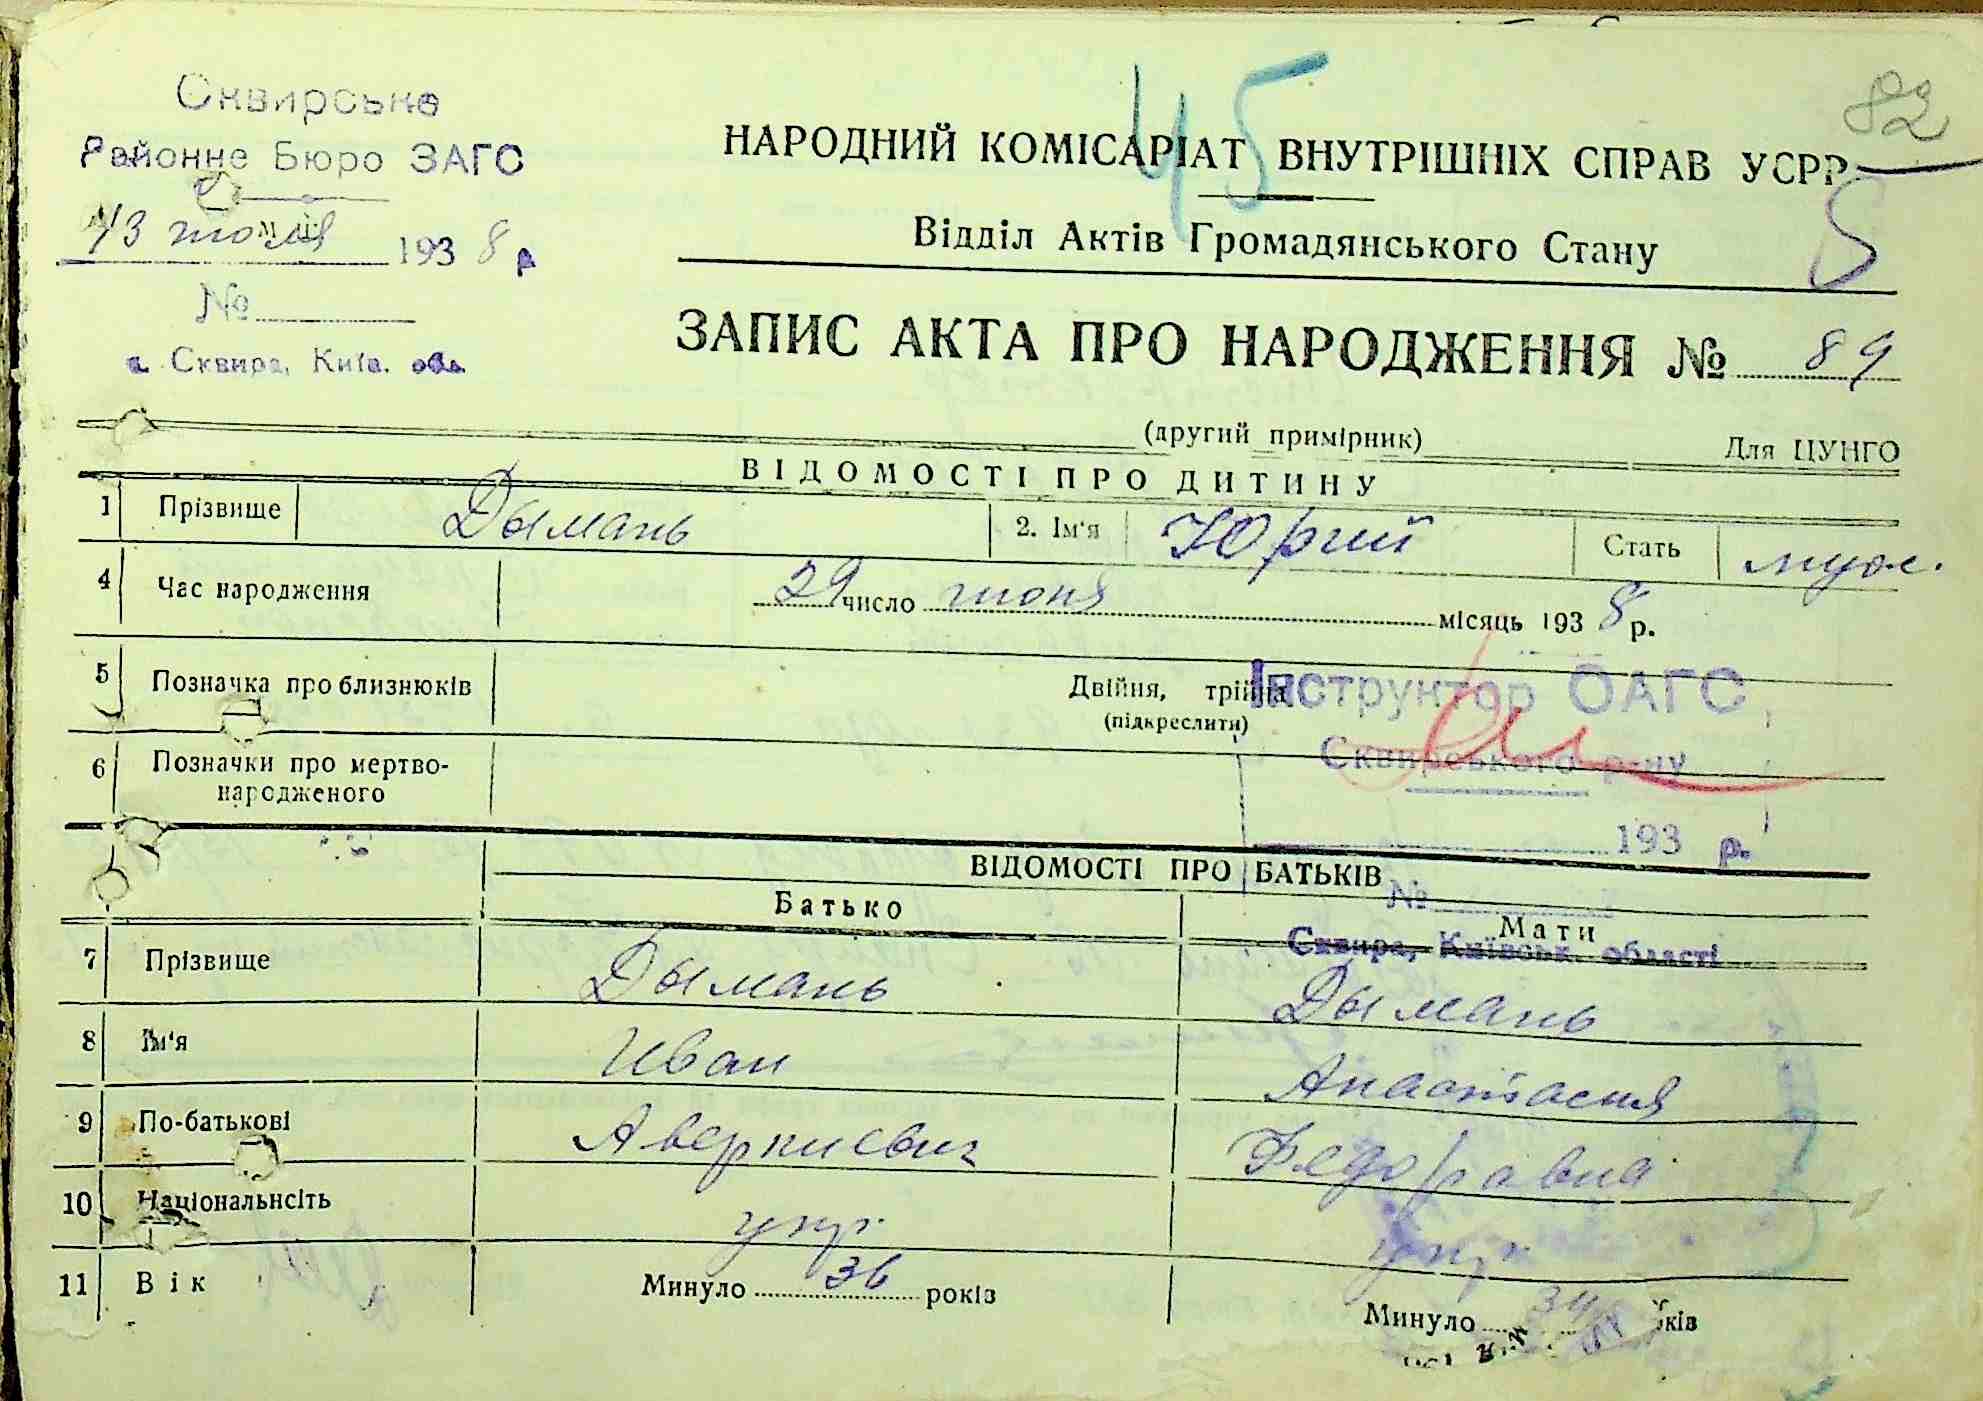 82
45
Сквирське
Районне Бюро ЗАГС
13 июля 1938 р
№
м. Сквира, Київ. обл.
НАРОДНИЙ КОМІСАРІАТ ВНУТРІШНІХ СПРАВ УСРР
5
Відділ Актів Громадянського Стану
ЗАПИС АКТА ПРО НАРОДЖЕННЯ № 89
(другий примірник) Для ЦУНГО
ВІДОМОСТІ ПРО ДИТИНУ
1 Прізвище Дымань 2. Ім'я Юрий Стать муж.
4 Час народження 29 число июня місяць 1938 р.
5 Позначка про близнюків Двійня, трійня
(підкреслити)
Інструктор ОАГС
Сквирського р-ну
193 р.
№
Сквира, Київськ. області
6 Позначки про мертво-
народженого
ВІДОМОСТІ ПРО БАТЬКІВ
Батько Мати
7 Прізвище Дымань Дымань
8 Ім'я Иван Анастасия
9 По-батькові Аверкиевич Федоравна
10 Національнсіть укр. укр.
11 Вік Минуло 36 років Минуло 34 ків